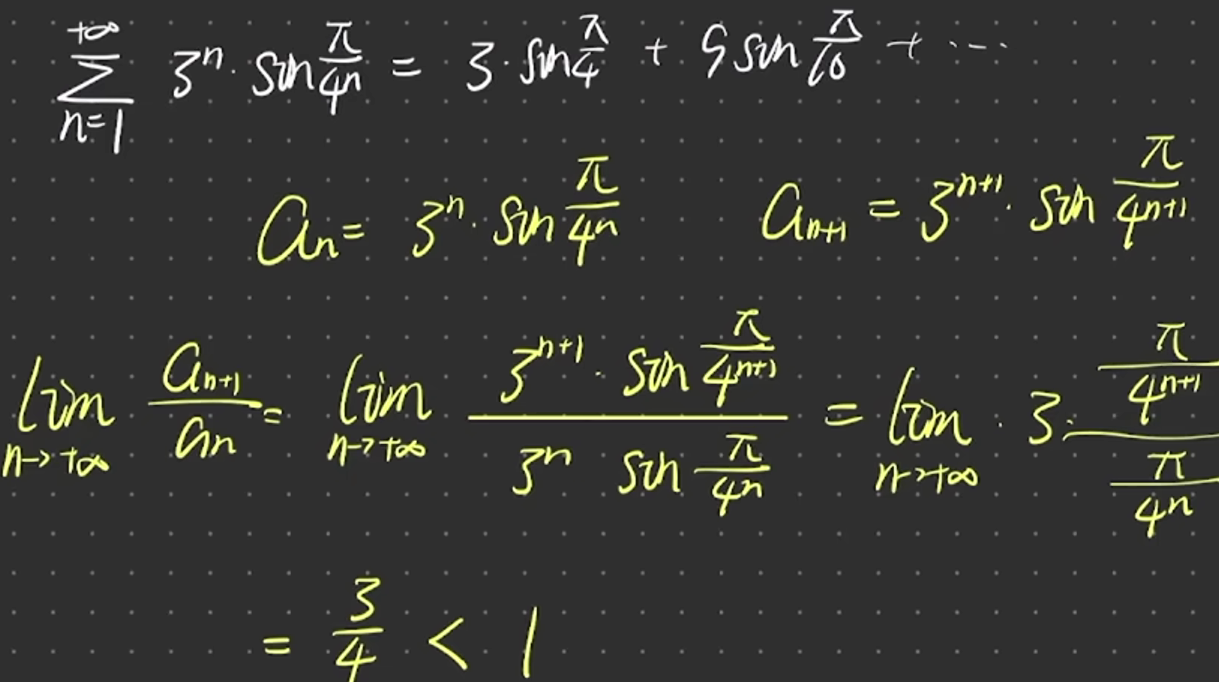 \sum_{n=1}^{+\infty} 3^n \cdot \sin\frac{\pi}{4^n} = 3 \cdot \sin\frac{\pi}{4} + 9\sin\frac{\pi}{16} + \cdots
a_n = 3^n \cdot \sin\frac{\pi}{4^n} a_{n+1} = 3^{n+1} \cdot \sin\frac{\pi}{4^{n+1}}
\lim_{n \to +\infty} \frac{a_{n+1}}{a_n} = \lim_{n \to +\infty} \frac{3^{n+1} \cdot \sin\frac{\pi}{4^{n+1}}}{3^n \sin\frac{\pi}{4^n}} = \lim_{n \to +\infty} 3 \cdot \frac{\frac{\pi}{4^{n+1}}}{\frac{\pi}{4^n}}
= \frac{3}{4} < 1